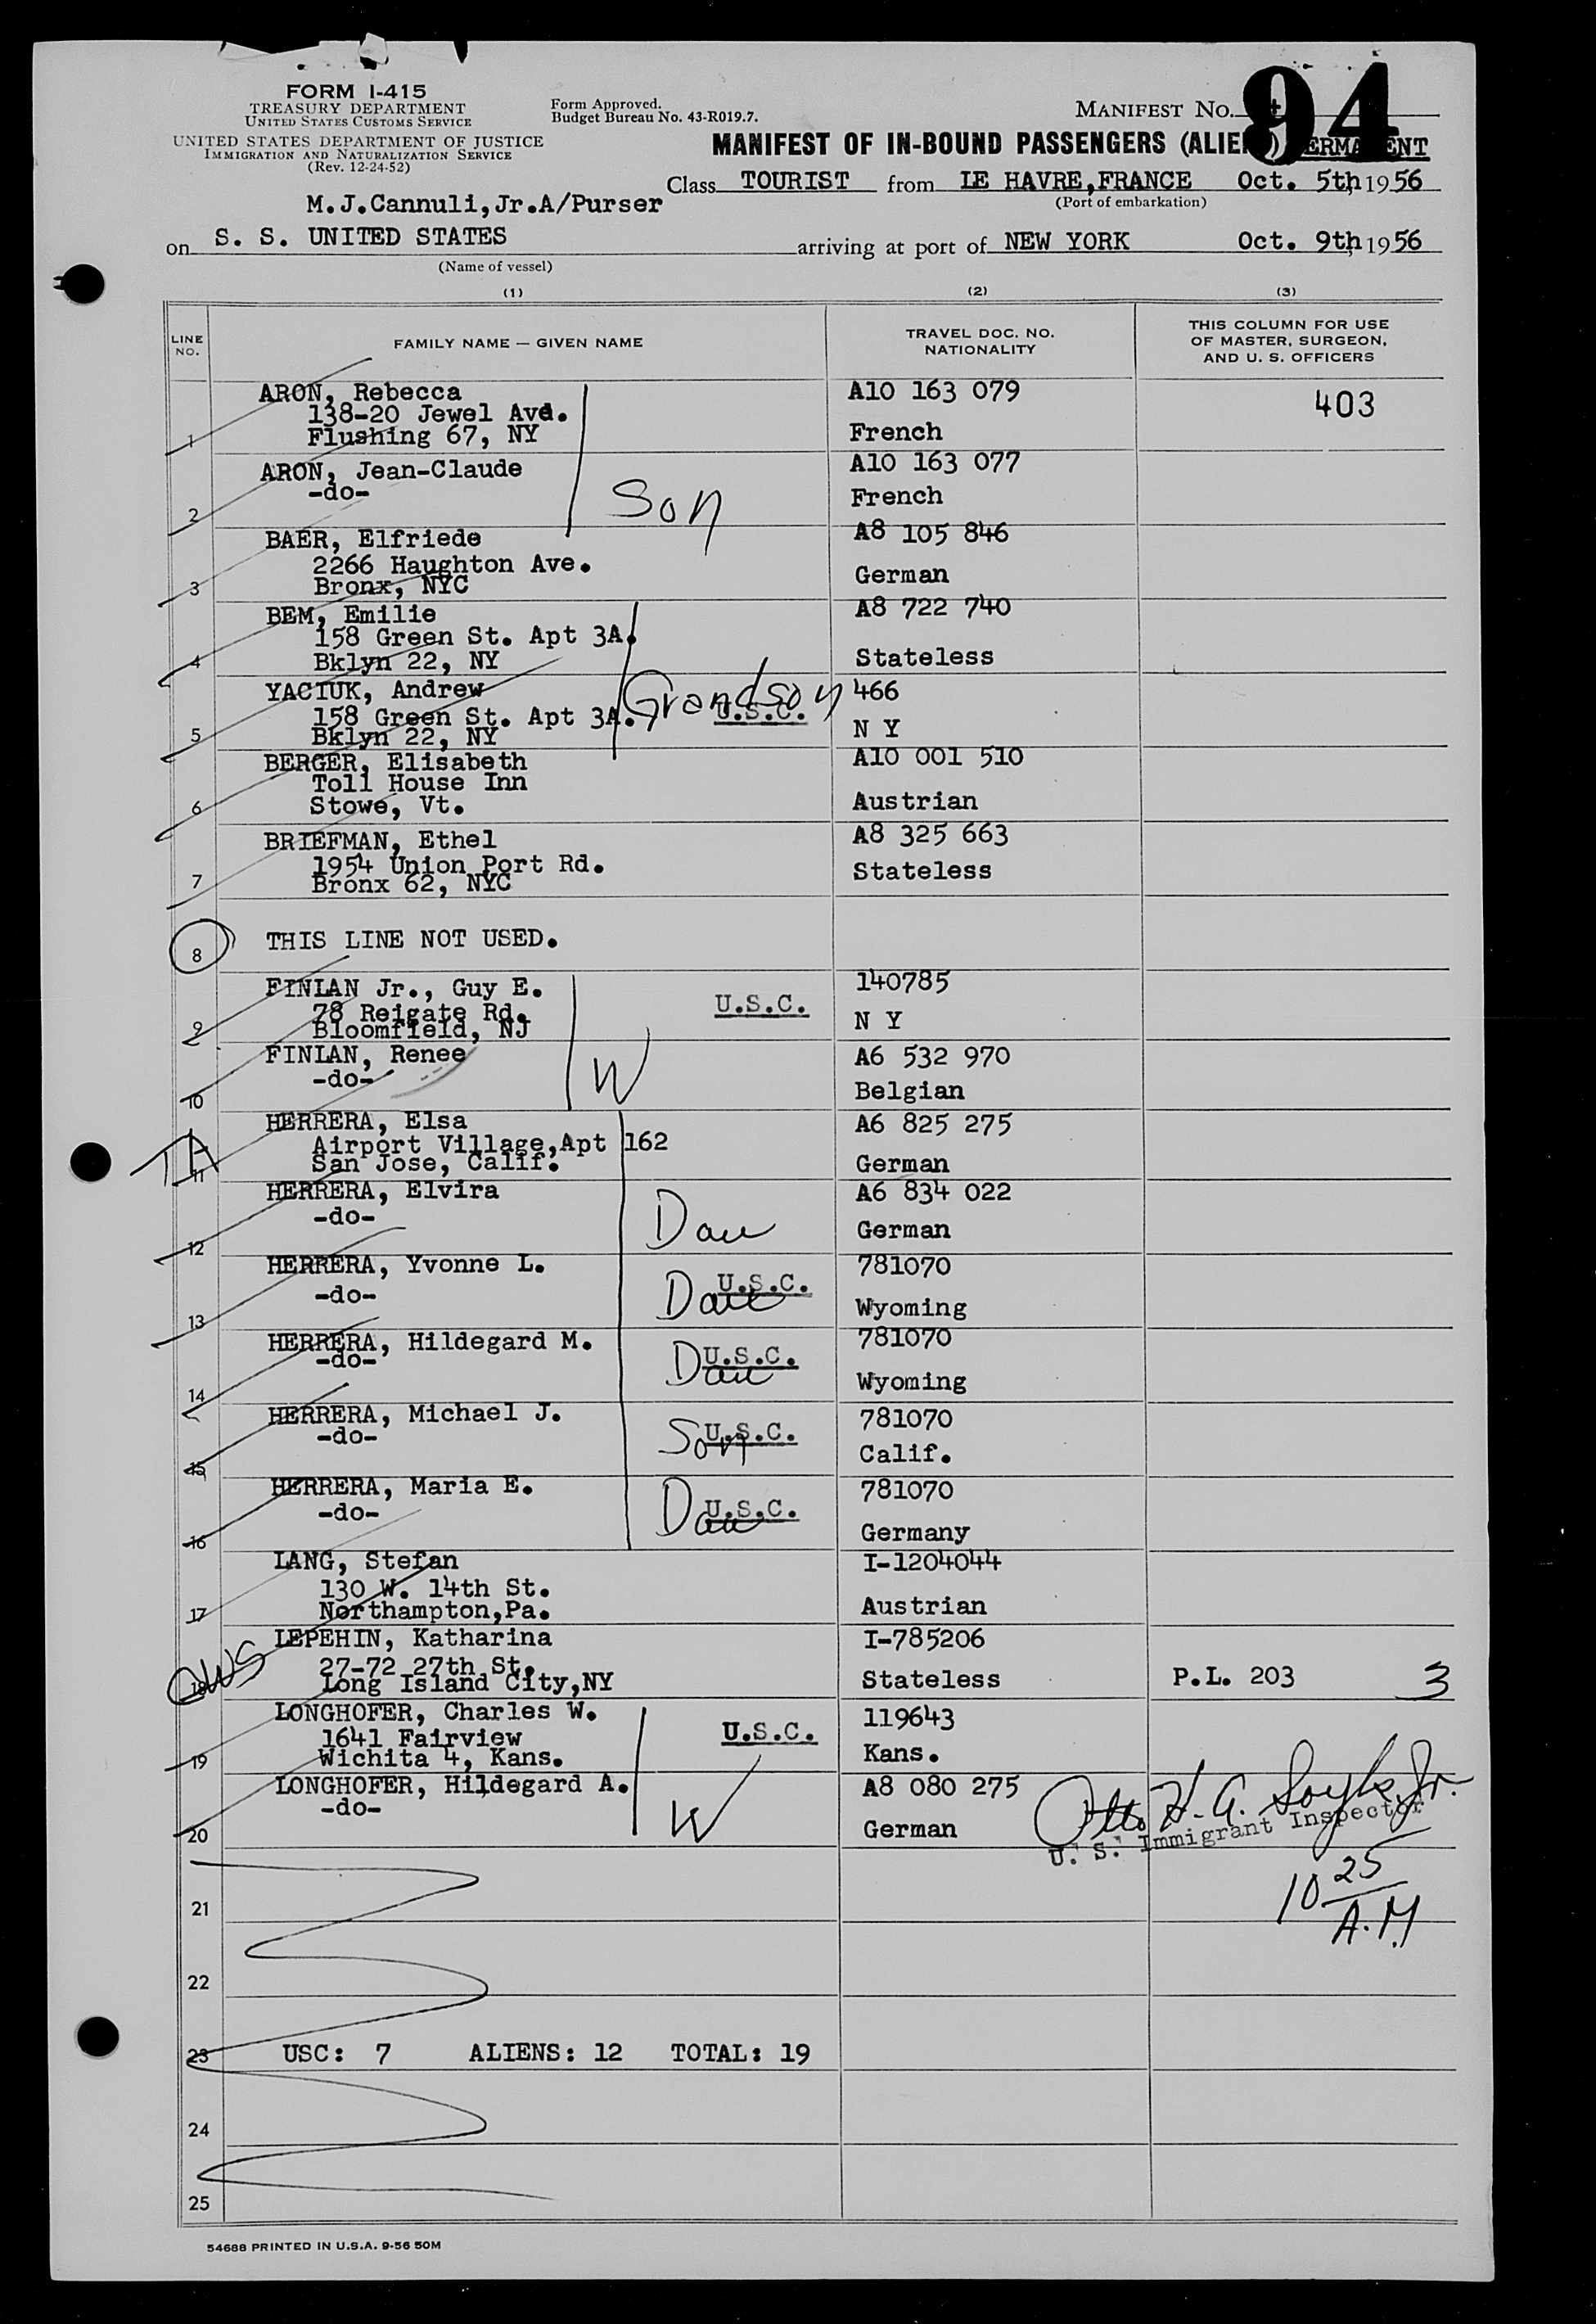 FORM I-415
TREASURY DEPARTMENT
UNITED STATES CUSTOMS SERVICE
UNITED STATES DEPARTMENT OF JUSTICE
IMMIGRATION AND NATURALIZATION SERVICE
(Rev. 12-24-52)
Form Approved.
Budget Bureau No. 43-R019.7.
MANIFEST NO. 94
MANIFEST OF IN-BOUND PASSENGERS (ALIENS) PERMANENT
Class TOURIST from LE HAVRE,FRANCE Oct. 5th, 1956
(Port of embarkation)
M.J.Cannuli,Jr.A/Purser
on S. S. UNITED STATES arriving at port of NEW YORK Oct. 9th, 1956
(Name of vessel)
(1) (2) (3)
LINE NO. FAMILY NAME — GIVEN NAME TRAVEL DOC. NO. NATIONALITY THIS COLUMN FOR USE OF MASTER, SURGEON, AND U. S. OFFICERS
ARON, Rebecca A10 163 079 403
138-20 Jewel Ave.
1 Flushing 67, NY French
ARON, Jean-Claude A10 163 077
2 -do- Son French
BAER, Elfriede A8 105 846
2266 Haughton Ave.
3 Bronx, NYC German
BEM, Emilie A8 722 740
158 Green St. Apt 3A.
4 Bklyn 22, NY Stateless
YACIUK, Andrew Grandson 466
158 Green St. Apt 3A. U.S.C.
5 Bklyn 22, NY N Y
BERGER, Elisabeth A10 001 510
Toll House Inn
6 Stowe, Vt. Austrian
BRIEFMAN, Ethel A8 325 663
1954 Union Port Rd. Stateless
7 Bronx 62, NYC
8 THIS LINE NOT USED.
FINLAN Jr., Guy E. U.S.C. 140785
78 Reigate Rd.
9 Bloomfield, NJ N Y
FINLAN, Renee A6 532 970
10 -do- W Belgian
HERRERA, Elsa A6 825 275
Airport Village,Apt 162
TA 11 San Jose, Calif. German
HERRERA, Elvira A6 834 022
12 -do- Dau German
HERRERA, Yvonne L. U.S.C. 781070
13 -do- Dau Wyoming
HERRERA, Hildegard M. U.S.C. 781070
14 -do- Dau Wyoming
HERRERA, Michael J. U.S.C. 781070
15 -do- Son Calif.
HERRERA, Maria E. U.S.C. 781070
16 -do- Dau Germany
LANG, Stefan I-1204044
130 W. 14th St.
17 Northampton,Pa. Austrian
LEPEHIN, Katharina I-785206
27-72 27th St.
18 Long Island City,NY Stateless P.L. 203 3
LONGHOFER, Charles W. U.S.C. 119643
1641 Fairview
19 Wichita 4, Kans. Kans.
LONGHOFER, Hildegard A. A8 080 275
20 -do- W German
Otto H. G. Jr.
U. S. Immigrant Inspector
10 25 A.M
21
22
23 USC: 7 ALIENS: 12 TOTAL: 19
24
25
54688 PRINTED IN U.S.A. 9-56 50M